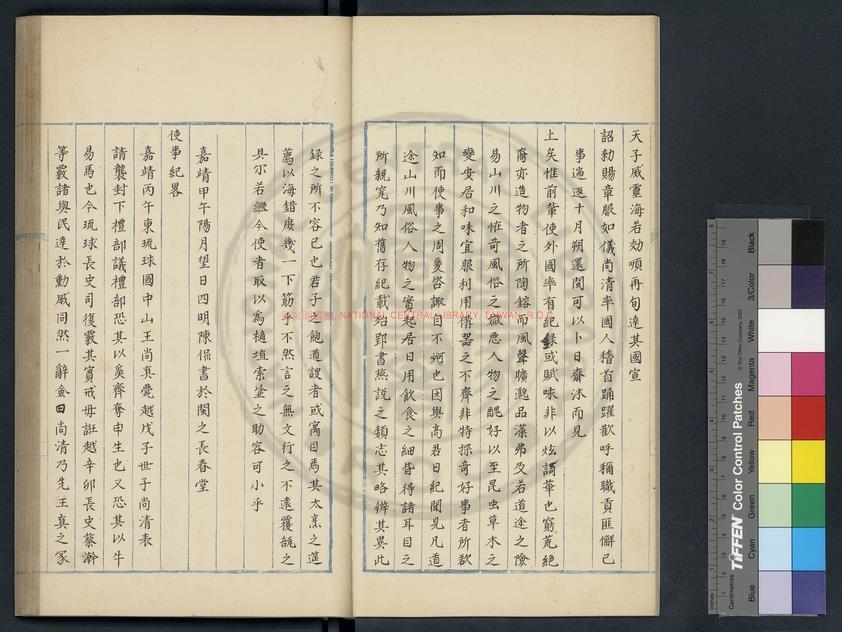 天子威靈海若効順再旬達其國宣
詔勅賜章服如儀尚清率國人稽首踊躍歡呼稱職貢匪懈已
事迺返十月朔還閩可以卜日齋沐而見
上矣惟前輩使外國率有紀錄或賦咏非以炫謂華也窮荒絶
裔亦造物者之所陶鎔而風聲曠邈品藻弗及若道途之險
易山川之恠奇風俗之媺惡人物之醜好以至昆虫草木之
變安居和味宜服利用備噐之不齊非特探奇好事者所欲
知而使事之周爰咨諏自不妸也因與高君日紀聞見凡道
途山川風俗人物之實起居日用飲食之細皆得諸耳目之
所親寃乃知舊存紀載殆郢書燕説之類志其略辨其異此
錄之所不容已也君子之飽道謏者或寓目焉其太烹之筵
薦以海錯庻幾一下筯乎不然言之無文行之不逺覆瓿之
具尔若繼今使者取以為擿埴索塗之助容可小乎
嘉靖甲午陽月望日四明陳侃書於閩之長春堂
使事紀畧
嘉靖丙午東琉球國中山王尚真薨越戊子世子尚清表
請襲封下禮部議禮部恐其以奚齊奪申生也又恐其以牛
易馬也令琉球長史司復覈其實戒毋誑越辛卯長史蔡瀚
等覈諸輿民達於勳戚同然一辭僉曰尚清乃先王真之冢
NATIONAL CENTRAL LIBRARY, TAIWAN, R.O.C
TIFFEN Color Control Patches
© The Tiffen Company, 2007
Inches
Centimetres
Blue
Cyan
Green
Yellow
Red
Magenta
White
3/Color
Black